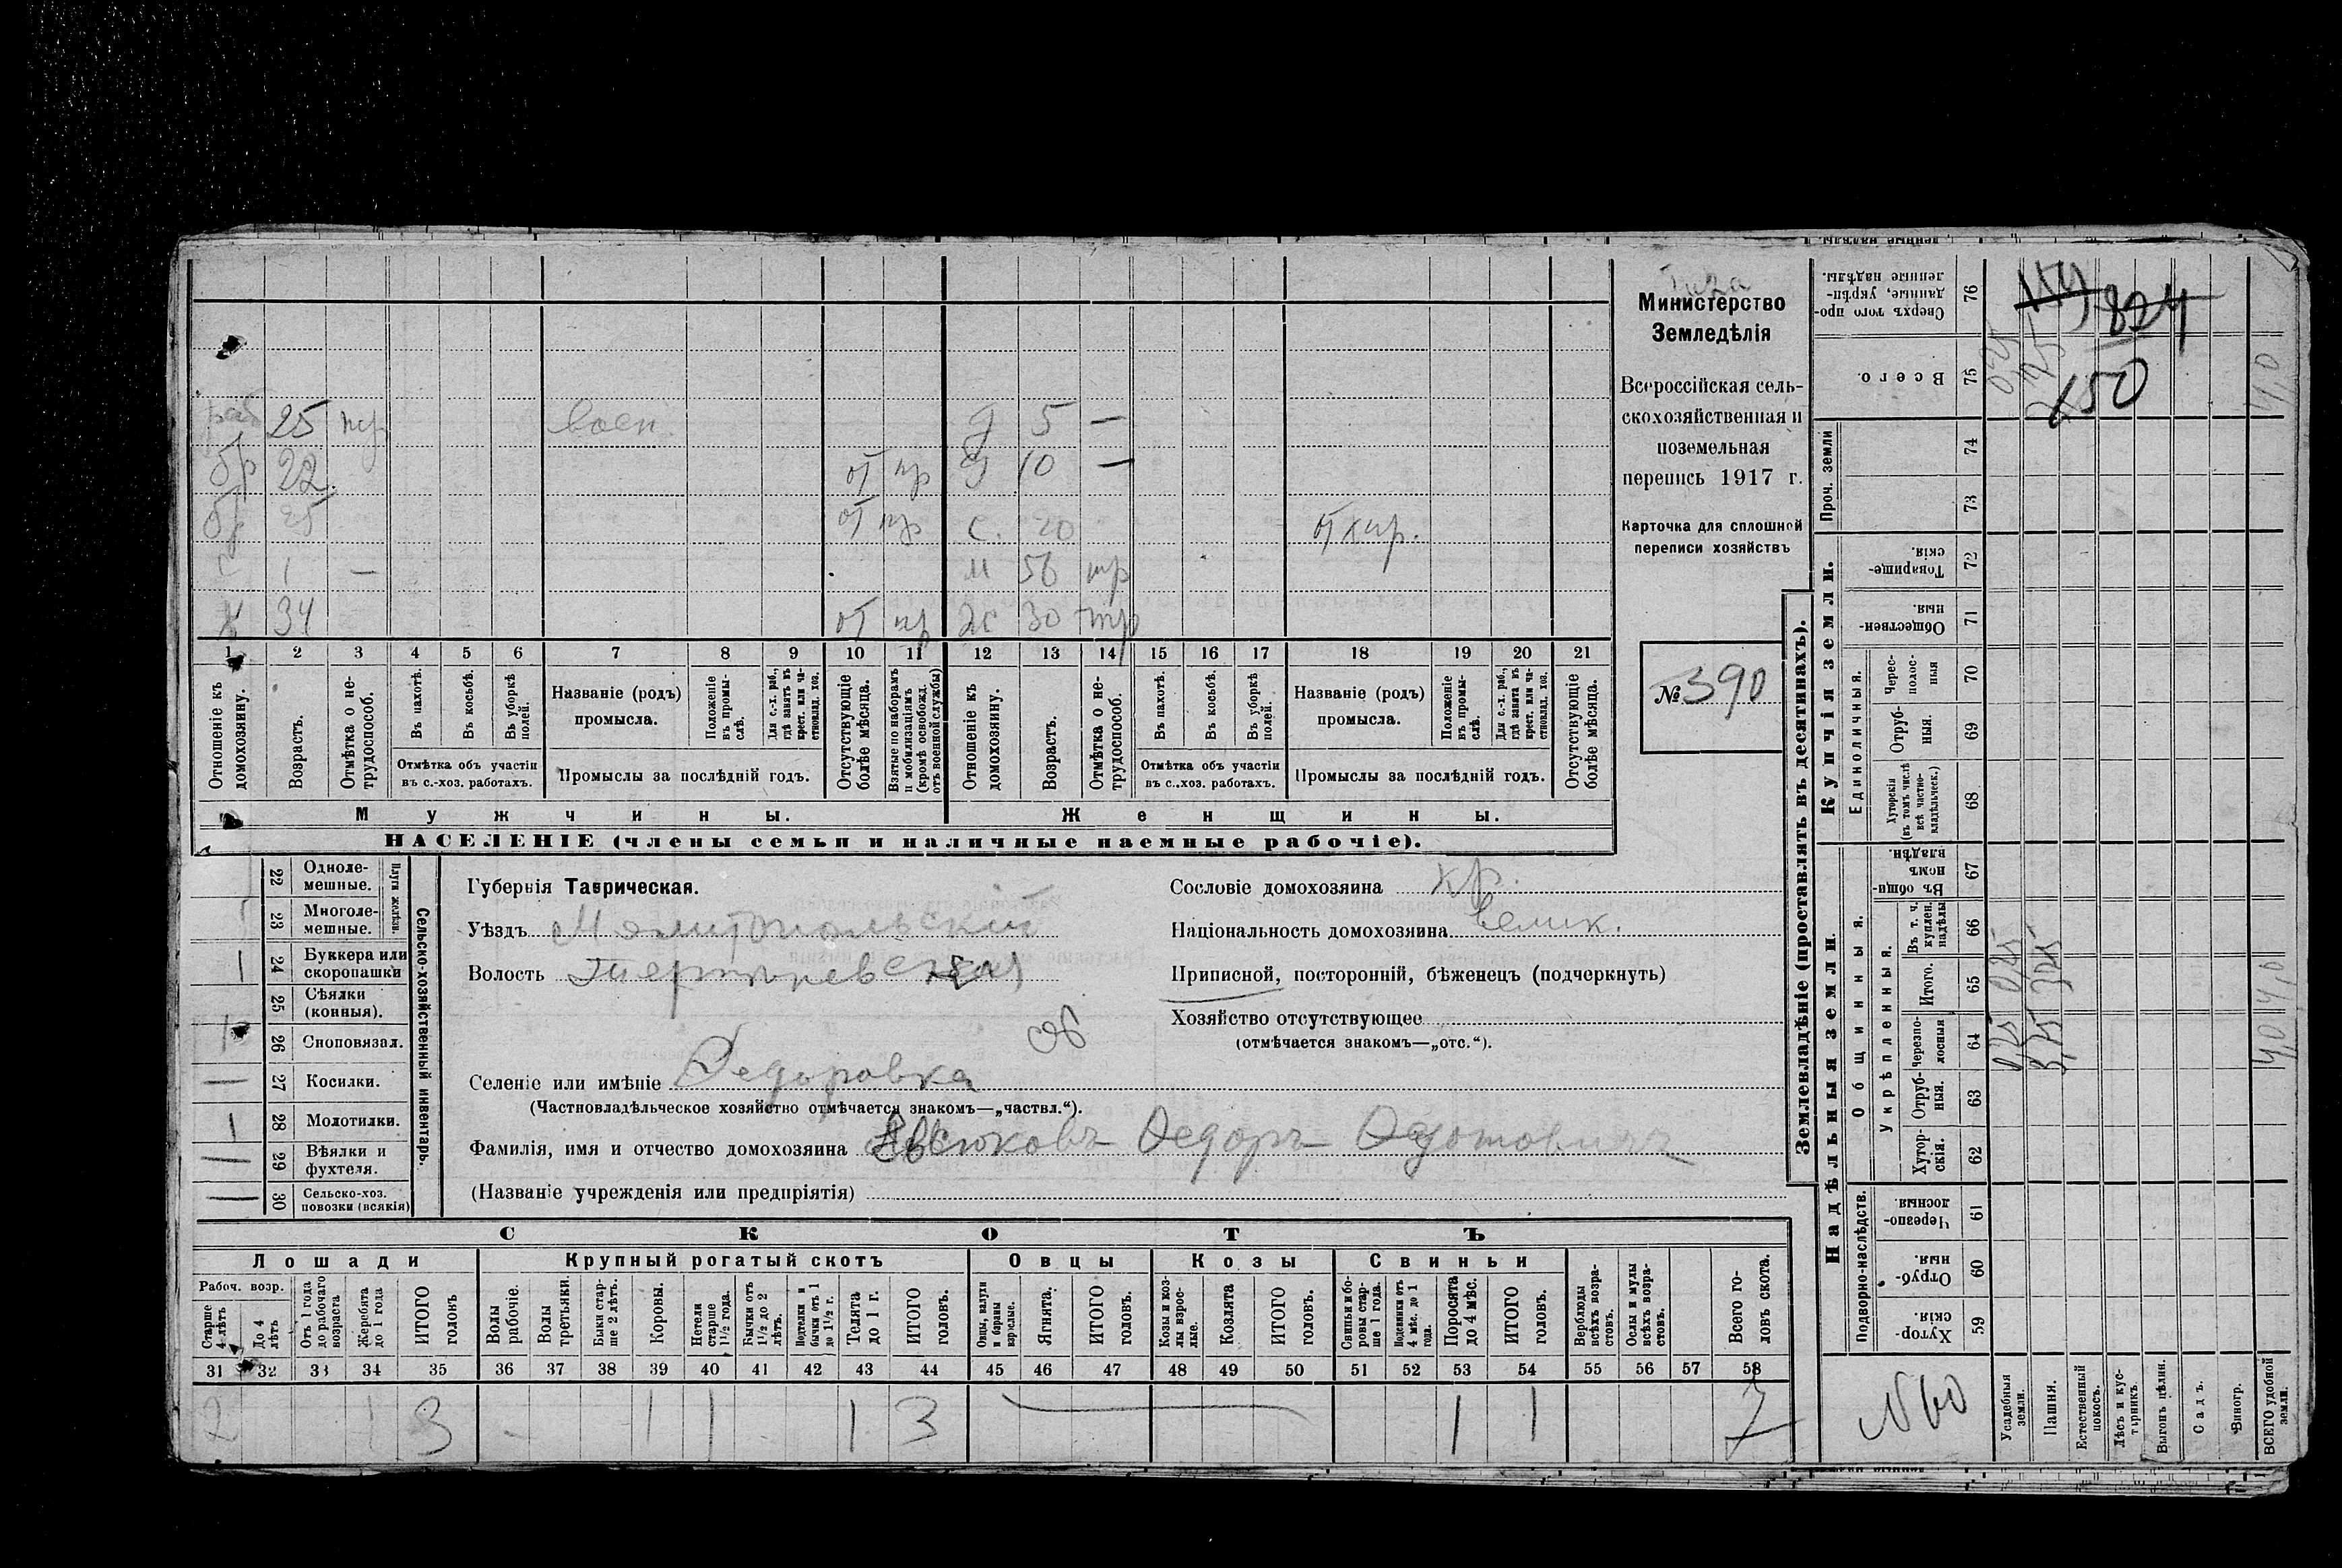 Министерство
Земледѣлія
Всероссійская сель-
скохозяйственная и
поземельная
перепись 1917 г.
Карточка для сплошной
переписи хозяйствъ
№ 390
25 воен. 5 —
бр 22 от пр 10 —
бр от пр с. 20
1 — м 56 тр
34 от пр 30 тр
1 2 3 4 5 6 7 8 9 10 11 12 13 14 15 16 17 18 19 20 21
Отношеніе къ домохозяину.
Возрастъ.
Отмѣтка о не-трудоспособ.
Въ пахотѣ.
Въ косьбѣ.
Въ уборкѣ полей.
Отмѣтка объ участіи
въ с.-хоз. работахъ.
Названіе (родъ)
промысла.
Положеніе въ промы-слѣ.
Для с.-х. раб., гдѣ занятъ въ крест. или ча-стновлад. хоз.
Промыслы за послѣдній годъ.
Отсутствующіе болѣе мѣсяца.
Взятые по наборамъ и мобилизаціямъ (кромѣ освобожд. отъ военной службы)
Отношеніе къ домохозяину.
Возрастъ.
Отмѣтка о не-трудоспособ.
Въ пахотѣ.
Въ косьбѣ.
Въ уборкѣ полей.
Отмѣтка объ участіи
въ с.-хоз. работахъ.
Названіе (родъ)
промысла.
Положеніе въ промы-слѣ.
Для с.-х. раб., гдѣ занята въ крест. или ча-стновлад. хоз.
Промыслы за послѣдній годъ.
Отсутствующіе болѣе мѣсяца.
Мужчины. Женщины.
НАСЕЛЕНІЕ (члены семьи и наличные наемные рабочіе).
Сельско-хозяйственный инвентарь.
Плуги желѣзн.
22 Одноле-мешные.
23 Многоле-мешные.
1 24 Буккера или скоропашки
25 Сѣялки (конныя).
26 Сноповязал.
— 27 Косилки.
1 28 Молотилки.
— 29 Вѣялки и фухтеля.
— 30 Сельско-хоз. повозки (всякія)
Губернія Таврическая.
Уѣздъ Мелитопольскій
Волость
Селеніе или имѣніе Федоровка
(Частновладѣльческое хозяйство отмѣчается знакомъ—„частвл.“).
Фамилія, имя и отчество домохозяина Федоръ Федотовичъ
(Названіе учрежденія или предпріятія)
Сословіе домохозяина кр.
Національность домохозяина велик.
Приписной, посторонній, бѣженецъ (подчеркнуть)
Хозяйство отсутствующее
(отмѣчается знакомъ—„отс.“).
СКОТЪ
Лошади Крупный рогатый скотъ Овцы Козы Свиньи
Рабоч. возр.
Старше 4 лѣтъ
До 4 лѣтъ
Отъ 1 года до рабочаго возраста
Жеребята до 1 года
ИТОГО головъ
Волы рабочіе.
Волы третьяки.
Быки стар-ше 2 лѣтъ.
Коровы.
Нетели старше 1½ года.
Бычки отъ 1½ до 2 лѣтъ.
Подтелки и бычки отъ 1 до 1½ г.
Телята до 1 г.
ИТОГО головъ.
Овцы, валухи и бараны взрослые.
Ягнята.
ИТОГО головъ.
Козы и коз-лы взрос-лые.
Козлята
ИТОГО головъ.
Свиньи и бо-ровы стар-ше 1 года.
Подсвинки отъ 4 мѣс. до 1 года.
Поросята до 4 мѣс.
ИТОГО головъ.
Верблюды всѣхъ возра-стовъ.
Ослы и мулы всѣхъ возра-стовъ.
Всего го-ловъ скота.
31 32 33 34 35 36 37 38 39 40 41 42 43 44 45 46 47 48 49 50 51 52 53 54 55 56 57 58
2 1 3 1 1 1 3 1 1 7
Землевладѣніе (проставлять въ десятинахъ).
Надѣльныя земли.
Купчія земли.
Проч. земли
Подворно-наслѣдств.
Общинныя.
Укрѣпленныя.
Единоличныя.
Сверхъ того про-данные, укрѣп-ленные надѣлы. 76
Всего. 75
74
73
Товарище-скія. 72
Обществен-ныя. 71
Черес-полос-ныя 70
Отруб-ныя. 69
Хуторскія (въ томъ числѣ всѣ частно-владѣльческ.) 68
Въ общин-номъ владѣн. 67
Въ т. ч. куплен. надѣлы 66
Итого. 65
Черезпо-лосныя 64
Отруб-ныя. 63
Хутор-скія. 62
Черезпо-лосныя 61
Отруб-ныя. 60
Хутор-скія 59
824
150
0,25 0,25
3,25
4,0 4,0
4,0
N 60
Усадебныя земли.
Пашня.
Естественный покосъ.
Лѣсъ и кус-тарникъ.
Выгонъ цѣлин.
Садъ.
Виногр.
ВСЕГО удобной земли.